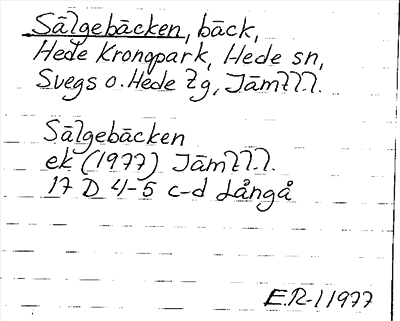 Sälgebäcken, bäck,
Hede Kronopark, Hede sn,
Svegs o. Hede tg, Jämtl.l.
Sälgebäcken
ek (1977) Jämtl.l.
17 D 4-5 c-d Långå
E.R-l 1977